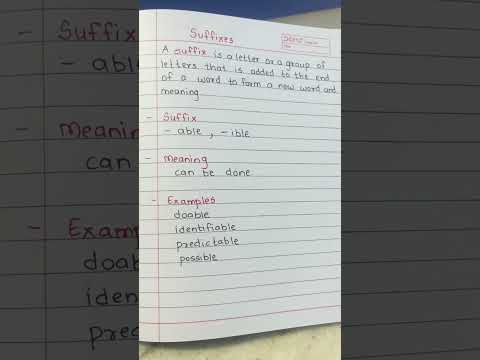 Suffixes
A suffix is a letter or a group of
letters that is added to the end
of a word to form a new word and
meaning
- Suffix
- able, - ible
- Meaning
can be done
- Examples
doable
identifiable
predictable
possible